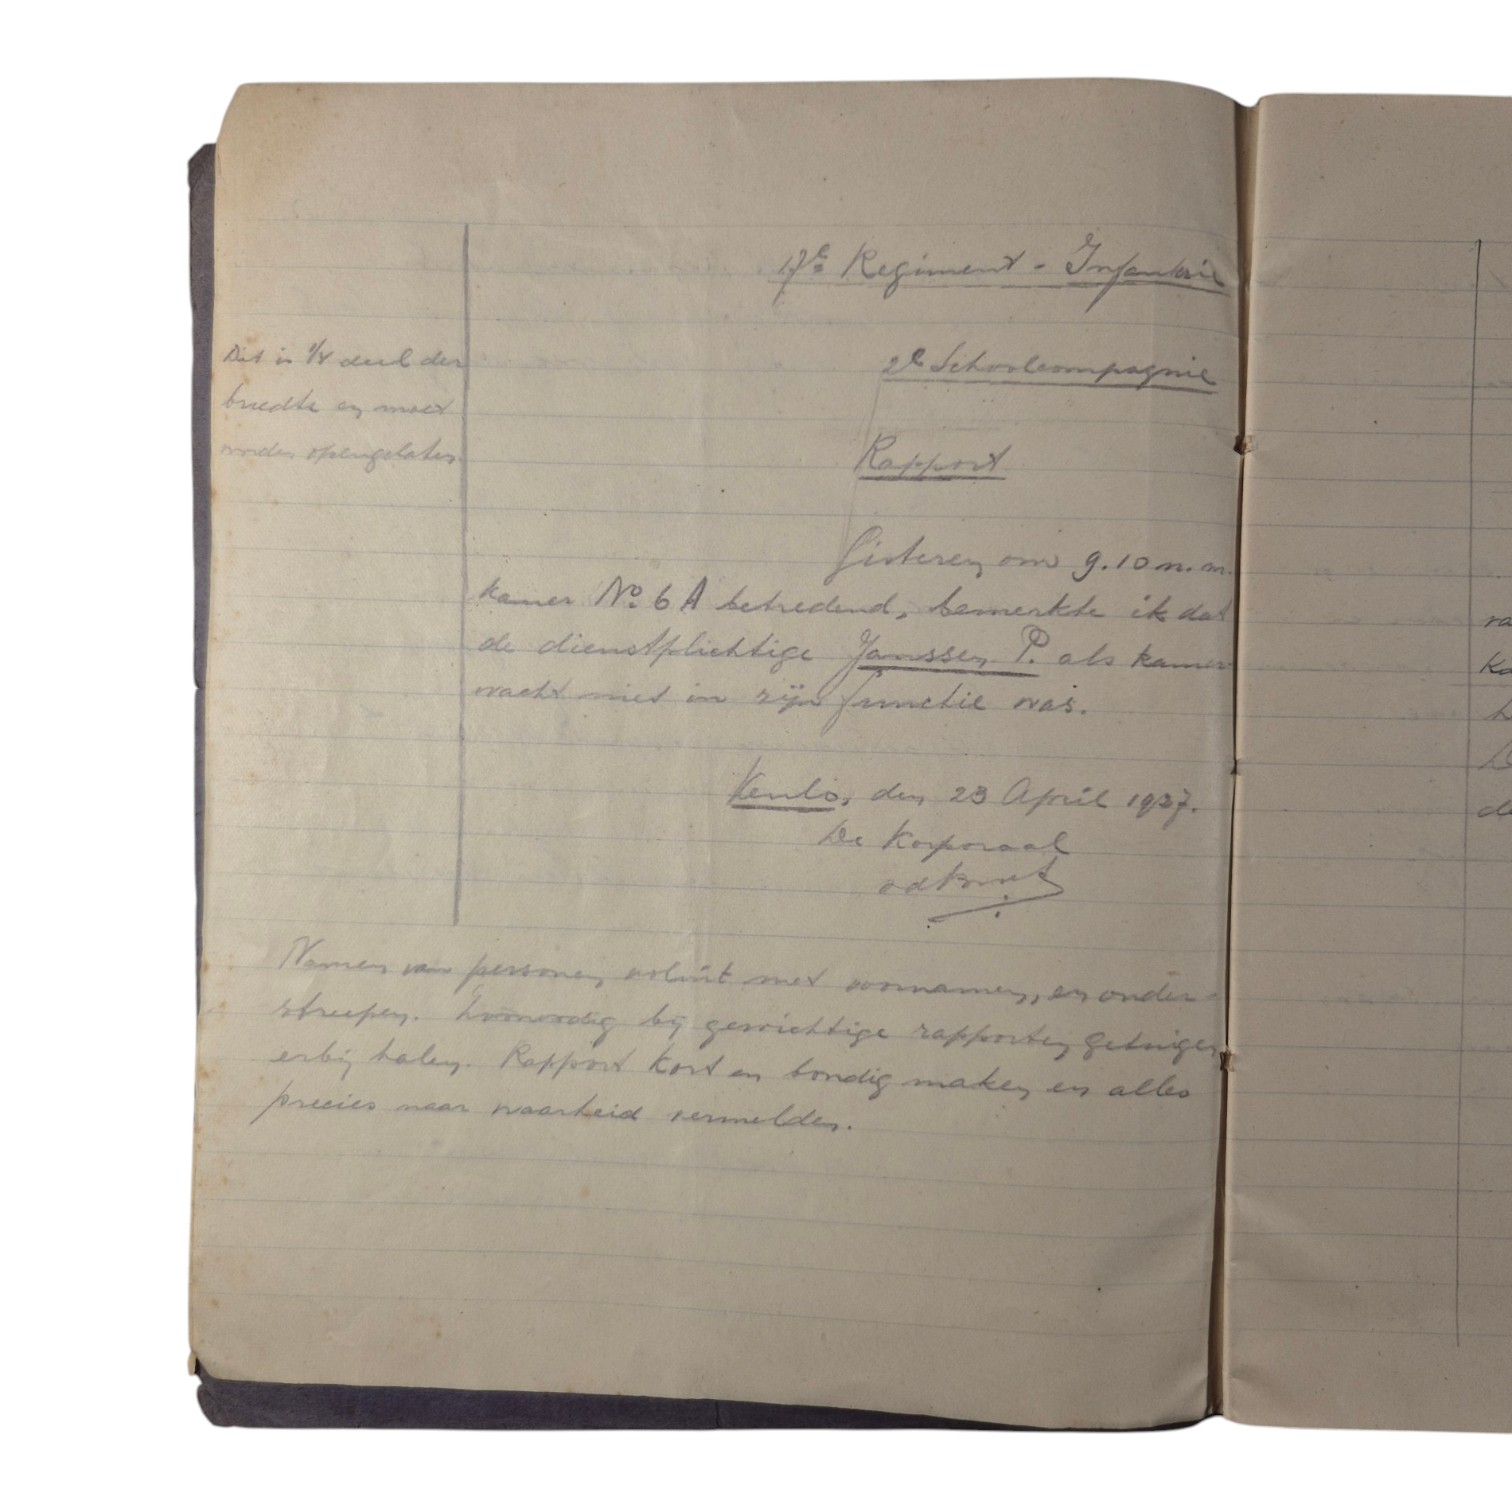 17e Regiment - Infanterie
2e Schoolcompagnie
Dit is 1/4 deel der
breedte en moet
worden opengelaten.
Rapport
Gisteren om 9.10 n.m.
kamer No. 6 A betredend, bemerkte ik dat
de dienstplichtige Janssen P. als kamer-
wacht niet in zijn functie was.
Venlo, den 23 April 1937.
De Korporaal
Namen van personen voluit met voornamen, en onder-
streepen. Zoonoodig bij gewichtige rapporten getuigen
erbij halen. Rapport kort en bondig maken en alles
precies naar waarheid vermelden.